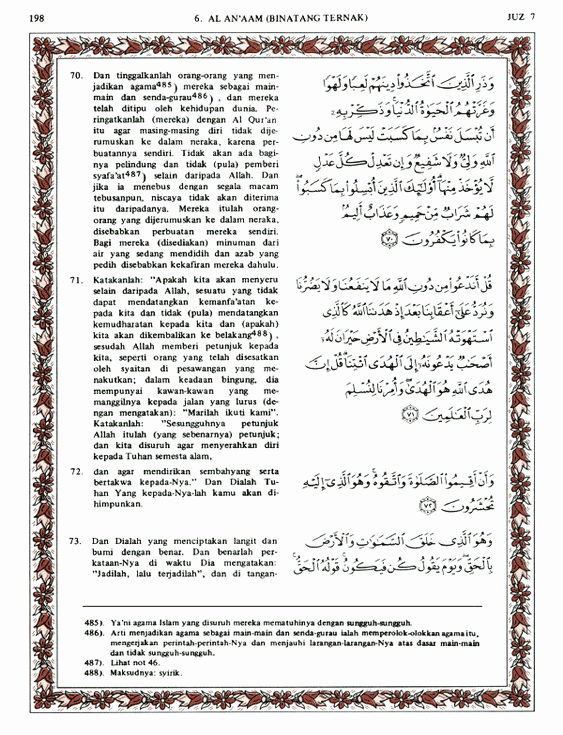 198
6. AL AN'AAM (BINATANG TERNAK)
JUZ 7
70. Dan tinggalkanlah orang-orang yang men-
jadikan agama485) mereka sebagai main-
main dan senda-gurau486) , dan mereka
telah ditipu oleh kehidupan dunia. Pe-
ringatkanlah (mereka) dengan Al Qur'an
itu agar masing-masing diri tidak dije-
rumuskan ke dalam neraka, karena per-
buatannya sendiri. Tidak akan ada bagi-
nya pelindung dan tidak (pula) pemberi
syafa'at487) selain daripada Allah. Dan
jika ia menebus dengan segala macam
tebusanpun, niscaya tidak akan diterima
itu daripadanya. Mereka itulah orang-
orang yang dijerumuskan ke dalam neraka,
disebabkan perbuatan mereka sendiri.
Bagi mereka (disediakan) minuman dari
air yang sedang mendidih dan azab yang
pedih disebabkan kekafiran mereka dahulu.
وَذَرِ الَّذِينَ اتَّخَذُوا دِينَهُمْ لَعِبًا وَلَهْوًا
وَغَرَّتْهُمُ الْحَيَوٰةُ الدُّنْيَا وَذَكِّرْ بِهِ
أَنْ تُبْسَلَ نَفْسٌ بِمَا كَسَبَتْ لَيْسَ لَهَا مِنْ دُونِ
اللَّهِ وَلِيٌّ وَلَا شَفِيعٌ وَإِنْ تَعْدِلْ كُلَّ عَدْلٍ
لَا يُؤْخَذْ مِنْهَا أُولَٰئِكَ الَّذِينَ أُبْسِلُوا بِمَا كَسَبُوا
لَهُمْ شَرَابٌ مِنْ حَمِيمٍ وَعَذَابٌ أَلِيمٌ
بِمَا كَانُوا يَكْفُرُونَ ٧٠
71. Katakanlah: "Apakah kita akan menyeru
selain daripada Allah, sesuatu yang tidak
dapat mendatangkan kemanfa'atan ke-
pada kita dan tidak (pula) mendatangkan
kemudharatan kepada kita dan (apakah)
kita akan dikembalikan ke belakang488) ,
sesudah Allah memberi petunjuk kepada
kita, seperti orang yang telah disesatkan
oleh syaitan di pesawangan yang me-
nakutkan; dalam keadaan bingung, dia
mempunyai kawan-kawan yang me-
manggilnya kepada jalan yang lurus (de-
ngan mengatakan): "Marilah ikuti kami".
Katakanlah: "Sesungguhnya petunjuk
Allah itulah (yang sebenarnya) petunjuk;
dan kita disuruh agar menyerahkan diri
kepada Tuhan semesta alam,
قُلْ أَنَدْعُوا مِنْ دُونِ اللَّهِ مَا لَا يَنْفَعُنَا وَلَا يَضُرُّنَا
وَنُرَدُّ عَلَىٰ أَعْقَابِنَا بَعْدَ إِذْ هَدَىٰنَا اللَّهُ كَالَّذِي
اسْتَهْوَتْهُ الشَّيَٰطِينُ فِي الْأَرْضِ حَيْرَانَ لَهُ
أَصْحَٰبٌ يَدْعُونَهُ إِلَى الْهُدَى ائْتِنَا قُلْ إِنَّ
هُدَى اللَّهِ هُوَ الْهُدَىٰ وَأُمِرْنَا لِنُسْلِمَ
لِرَبِّ الْعَٰلَمِينَ ٧١
72. dan agar mendirikan sembahyang serta
bertakwa kepada-Nya." Dan Dialah Tu-
han Yang kepada-Nya-lah kamu akan di-
himpunkan.
وَأَنْ أَقِيمُوا الصَّلَوٰةَ وَاتَّقُوهُ وَهُوَ الَّذِي إِلَيْهِ
تُحْشَرُونَ ٧٢
73. Dan Dialah yang menciptakan langit dan
bumi dengan benar. Dan benarlah per-
kataan-Nya di waktu Dia mengatakan:
"Jadilah, lalu terjadilah", dan di tangan-
وَهُوَ الَّذِي خَلَقَ السَّمَٰوَٰتِ وَالْأَرْضَ
بِالْحَقِّ وَيَوْمَ يَقُولُ كُنْ فَيَكُونُ قَوْلُهُ الْحَقُّ
485). Ya'ni agama Islam yang disuruh mereka mematuhinya dengan sungguh-sungguh.
486). Arti menjadikan agama sebagai main-main dan senda-gurau ialah memperolok-olokkan agama itu,
mengerjakan perintah-perintah-Nya dan menjauhi larangan-larangan-Nya atas dasar main-main
dan tidak sungguh-sungguh.
487). Lihat not 46.
488). Maksudnya: syirik.